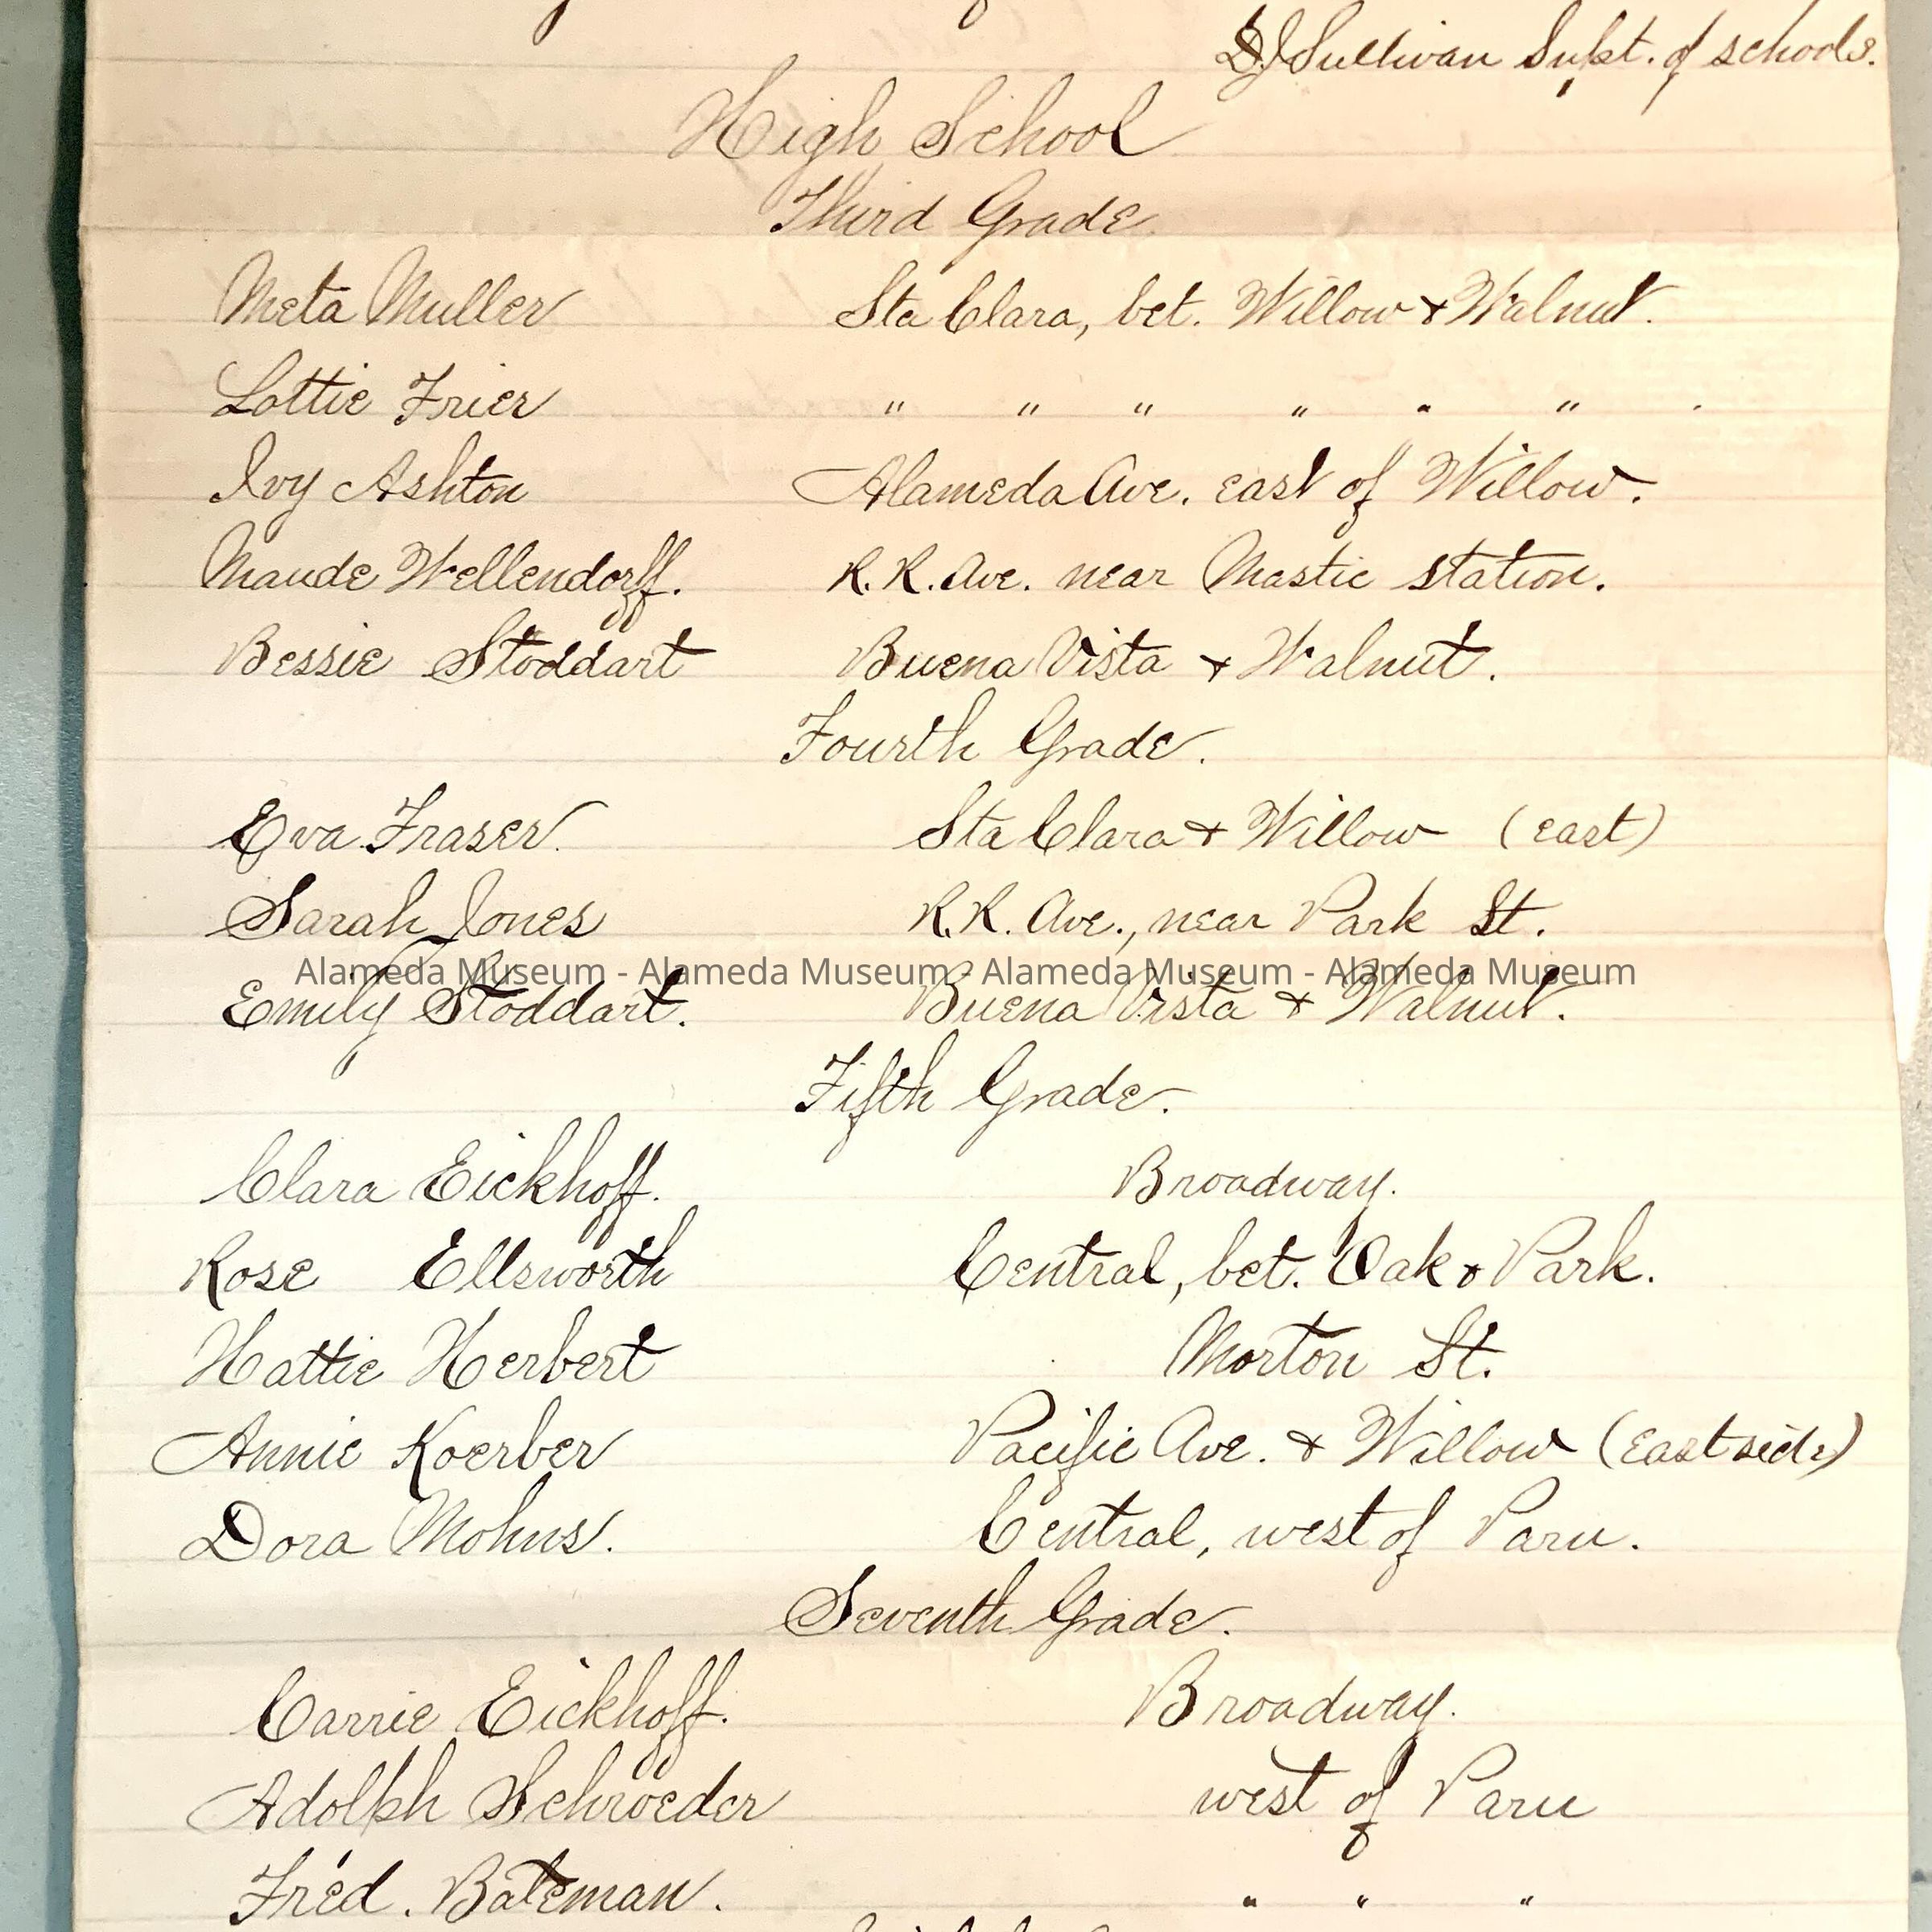 DJ Sullivan Supt. of schools.
High School
Third Grade
Meta Muller Sta Clara, bet. Willow & Walnut.
Lottie Frier " " " " " " .
Ivy Ashton Alameda Ave. east of Willow.
Maude Wellendorff. R.R. Ave. near Mastic station.
Bessie Stoddart Buena Vista & Walnut.
Fourth Grade.
Eva Fraser. Sta Clara & Willow (east)
Sarah Jones R.R. Ave., near Park St.
Alameda Museum - Alameda Museum - Alameda Museum - Alameda Museum
Emily Stoddart. Buena Vista & Walnut.
Fifth Grade.
Clara Eickhoff. Broadway.
Rose Ellsworth Central, bet. Oak & Park.
Hattie Herbert Morton St.
Annie Koerber Pacific Ave. & Willow (east side)
Dora Mohns. Central, west of Paru.
Seventh Grade.
Carrie Eickhoff. Broadway.
Adolph Schroeder west of Paru
Fred. Bateman. " " "